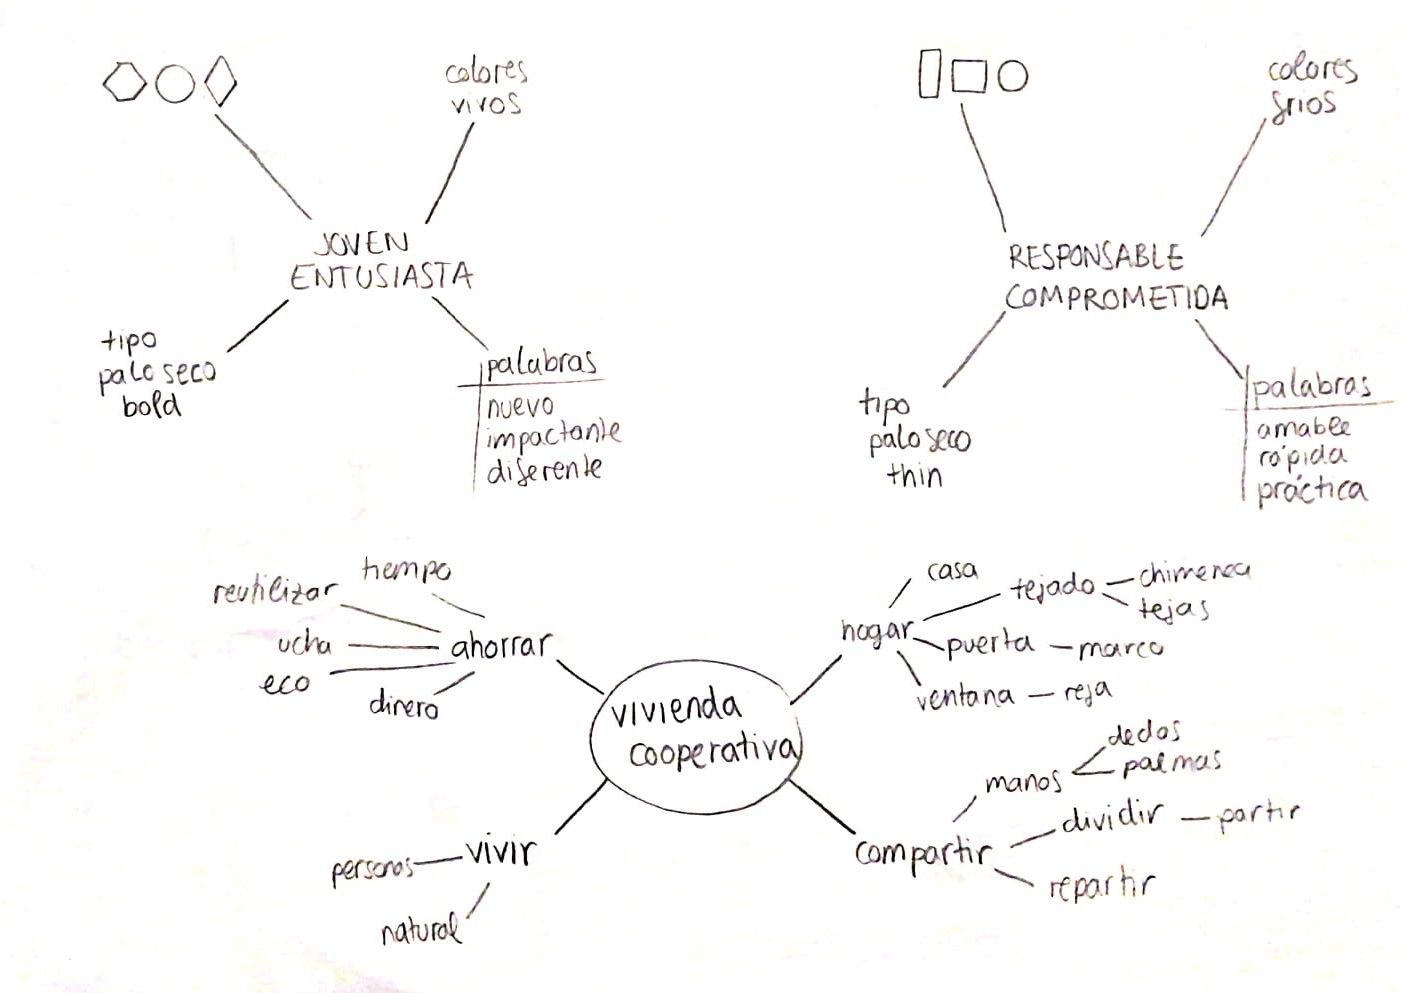 colores
vivos
JOVEN
ENTUSIASTA
tipo
palo seco
bold
palabras
nuevo
impactante
diferente
colores
frios
RESPONSABLE
COMPROMETIDA
tipo
palo seco
thin
palabras
amable
rápida
práctica
vivienda
cooperativa
ahorrar
tiempo
reutilizar
ucha
eco
dinero
hogar
casa
tejado
chimenea
tejas
puerta
marco
ventana
reja
vivir
personas
natural
compartir
manos
dedos
palmas
dividir
partir
repartir